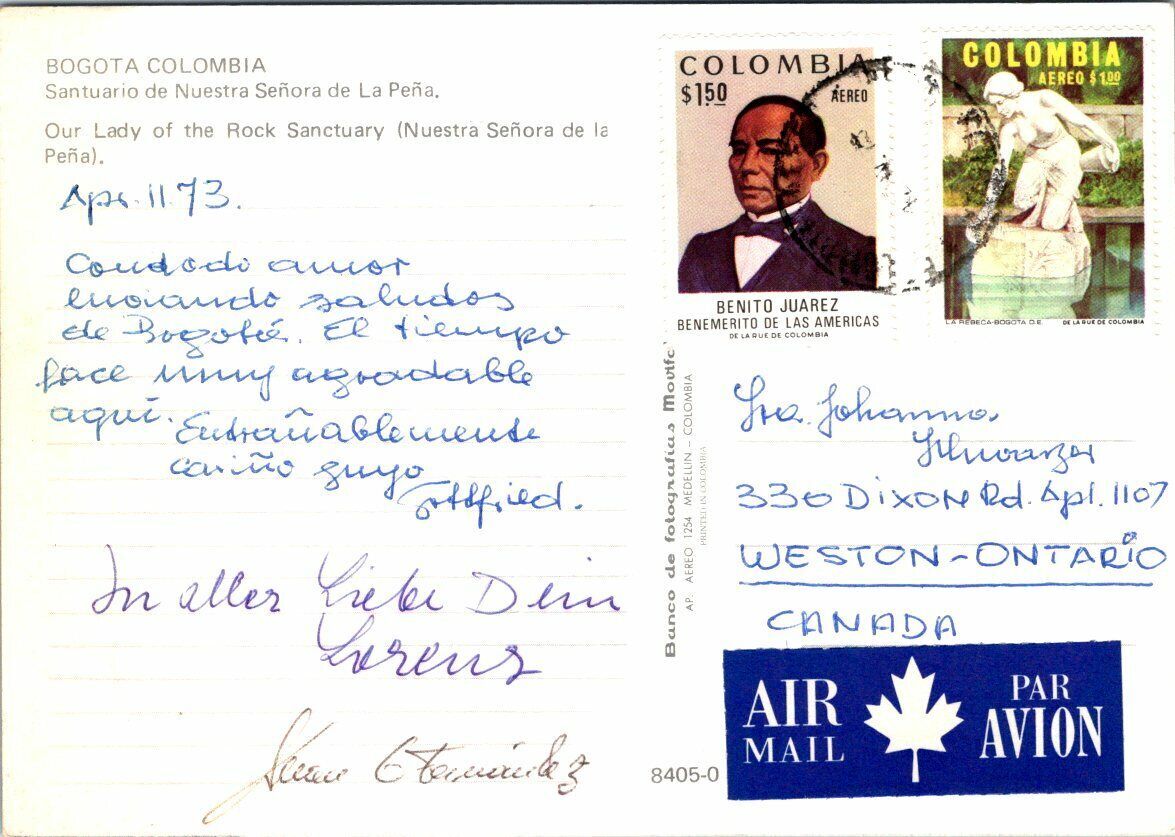 BOGOTA COLOMBIA
Santuario de Nuestra Señora de La Peña.
Our Lady of the Rock Sanctuary (Nuestra Señora de la
Peña).
Apr. 11. 73.
amor
enviando saludos
de Bogotá. El tiempo
face muy agradable
aquí.
Entrañablemente
cariño suyo
Gottfried.
In aller Liebe Dein
Lorenz
COLOMBIA
$1.50
AEREO
BENITO JUAREZ
BENEMERITO DE LAS AMERICAS
DE LA RUE DE COLOMBIA
COLOMBIA
AEREO $1.00
LA REBECA-BOGOTA D.E. DE LA RUE DE COLOMBIA
Banco de fotografias Movifo
AP. AEREO 1254 MEDELLIN - COLOMBIA
PRINTED IN COLOMBIA
Sra. Johanna
Schwarzer
330 DIXON Rd. Apt. 1107
WESTON-ONTARIO
CANADA
AIR MAIL
PAR AVION
8405-0